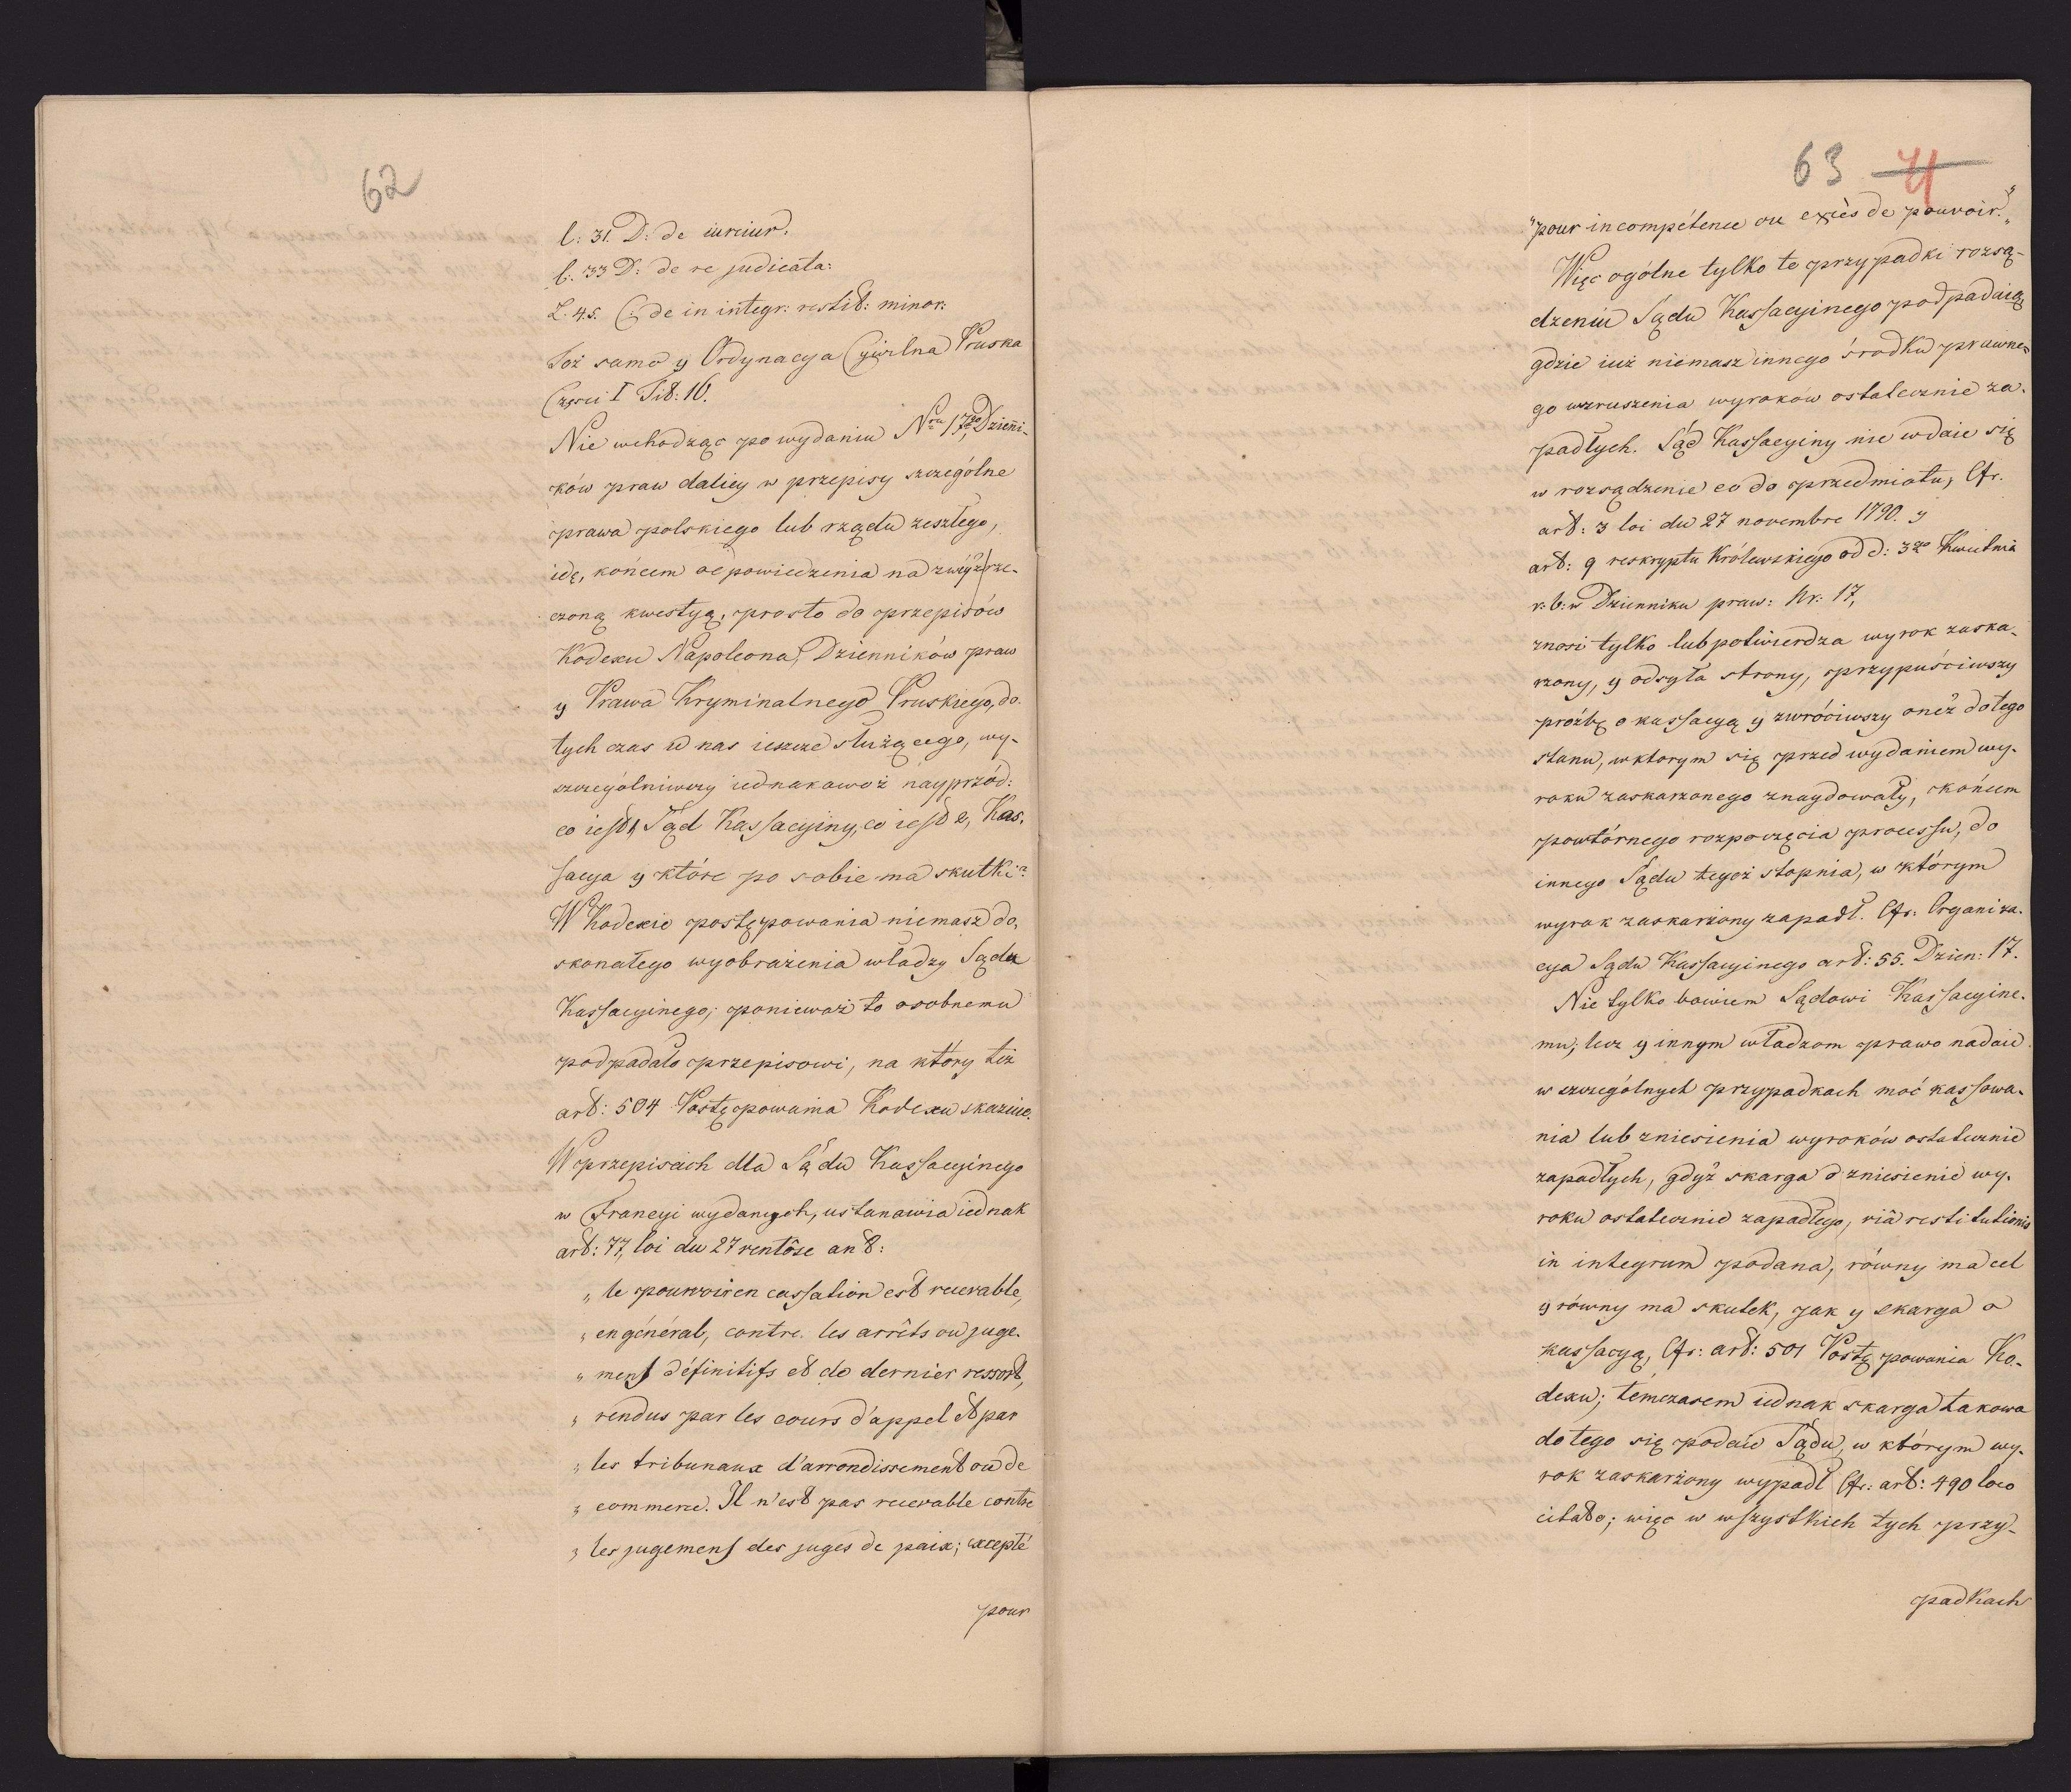 62
l: 31. D: de iureiur.
l: 33 D: de re judicata:
L. 4.5. C: de in integr: restit: minor:
Toż samo y Ordynacya Cywilna Pruska
Części I Tit: 16.
Nie wchodząc po wydaniu Nru 17go Dzienni-
ków praw daliey w przepisy szczególne
prawa polskiego lub rządu zeszłego,
idę, końcem odpowiedzenia na zwyż rze-
czoną kwestyą, prosto do przepisów
Kodexu Napoleona, Dzienników praw
y Prawa Kryminalnego Pruskiego, do-
tych czas u nas ieszcze służącego, wy-
szczególniwszy iednakowoż náyprzód:
co iest 1, Sąd Kassacyiny, co iest 2, Kas-
sacya y które po sobie ma skutki?
W Kodexie postępowania niemasz do-
skonałego wyobrażenia władzy Sądu
Kassacyinego; ponieważ to osobnemu
podpadało przepisowi, na który też
art: 504 Postępowania Kodexu skazuie.
W przepisach dla Sądu Kassacyinego
w Francyi wydanych, ustanawia iednak
art: 77, loi du 27 ventôse an 8:
„ le pourvoir en cassation est recevable,
„ en général, contre les arrêts ou juge-
„ mens définitifs et de dernier ressort,
„ rendus par les cours d'appel et par
„ les tribunaux d'arrondissement ou de
„ commerce. Il n'est pas recevable contre
„ les jugemens des juges de paix; excepté
pour
63 4
"pour incompétence ou exçès de pouvoir."
Więc ogólne tylko te przypadki rozsą-
dzeniu Sądu Kassacyinego podpadaią
gdzie iuż niemasz innego środku prawne-
go wzruszenia wyroków ostatecznie za-
padłych. Sąd Kassacyiny nie wdaie się
w rozsądzenie co do przedmiotu, Cfr.
art: 3 loi du 27 novembre 1790. y
art: 9 reskryptu Królewskiego od d: 3go Kwietnia
r: b: w Dzienniku praw: Nr: 17,
znosi tylko lub potwierdza wyrok zaska-
rzony, y odsyła strony, przypuściwszy
prożbę o kassacyą y zwróciwszy oneż do tego
stanu, w ktorym się przed wydaniem wy-
roku zaskarzonego znaydowały, końcem
powtórnego rozpoczęcia processu, do
innego Sądu tegoż stopnia, w którym
wyrok zaskarżony zapadł. Cfr: Organiza-
cya Sądu Kassacyinego art: 55. Dzien: 17.
Nie tylko bowiem Sądowi Kassacyine-
mu; lecz y innym władzom prawo nadaie
w szczególnych przypadkach moć kassowa-
nia lub zniesienia wyroków ostatecznie
zapadłych, gdyż skarga o zniesienie wy-
roku ostatecznie zapadłego, viâ restitutionis
in integrum podana, równy ma cel
y równy ma skutek, jak y skarga o
kassacyą, Cfr: art: 501 Postępowania Ko-
dexu; temczasem iednak skarga takowa
do tego się podaie Sądu, w którym wy-
rok zaskarżony wypadł Cfr: art: 490 loco
citato; więc w wszystkich tych przy-
padkach